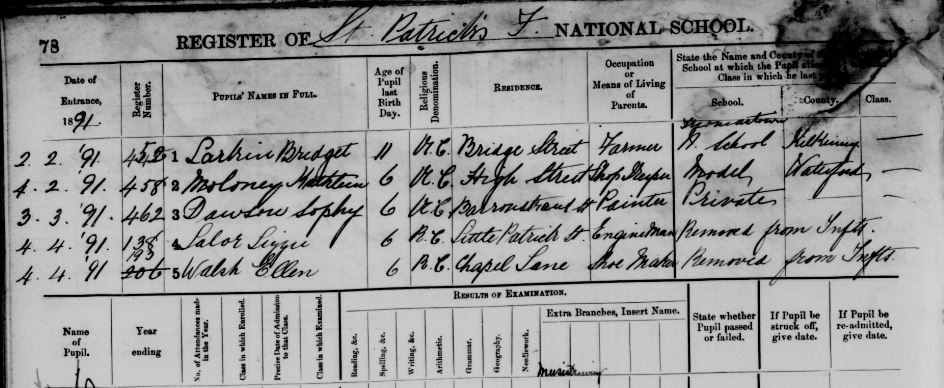 78
REGISTER OF St. Patrick's F. NATIONAL SCHOOL.
Date of Entrance, 1891.
Register Number.
PUPILS' NAMES IN FULL.
Age of Pupil last Birth Day.
Religious Denomination.
RESIDENCE.
Occupation or Means of Living of Parents.
State the Name and County of
School at which the Pupil
Class in which he last
School.
County.
Class.
2. 2. '91 1 Larkin Bridget 11 R.C. Bridge Street Farmer N. School Kilkenny —
4. 2. '91. 458 2 Moloney Kathleen 6 R.C. High Street Shop Keeper Model, Waterford, —
3. 3. '91 462 3 Dawson Sophy 6 R.C. Barronstrand St Painter Private —
4. 4. '91. 138 4 Lalor Lizzie 6 R.C. Little Patrick St. Engine Man Removed from Infts.
193
4. 4. '91 206 5 Walsh Ellen 6 R.C. Chapel Lane Shoe Maker Removed from Infts.
RESULTS OF EXAMINATION.
Name of Pupil.
Year ending
No. of Attendances made in the Year.
Class in which Enrolled.
Precise Date of Admission to that Class.
Class in which Examined.
Reading, &c.
Spelling, &c.
Writing, &c.
Arithmetic.
Grammar.
Geography.
Needlework.
Extra Branches, Insert Name.
Music Drawing
State whether Pupil passed or failed.
If Pupil be struck off, give date.
If Pupil be re-admitted, give date.